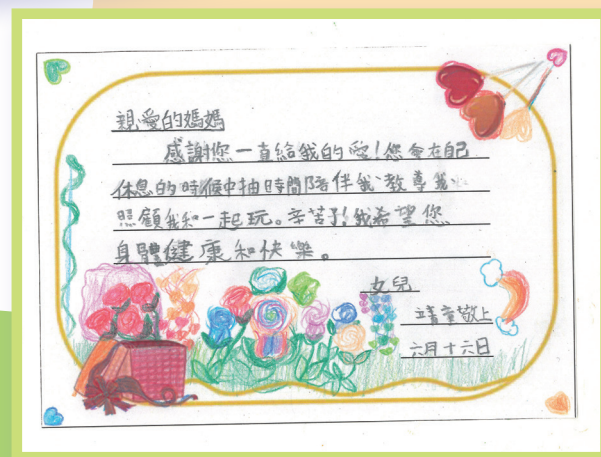 親愛的媽媽
感謝您一直給我的愛!您會在自己
休息的時候中抽時間陪伴我、教導我、
照顧我和一起玩。辛苦了!我希望您
身體健康和快樂。
女兒
敬上
六月十六日